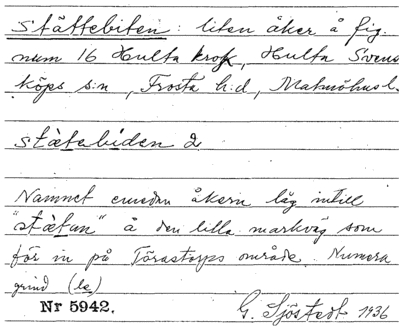 Stättebiten: liten åker å fig.
num 16 Hulta krok, Hulta Svens
köps s:n, Frosta h:d, Malmöhus l.
stä̀tebíden 2
Namnet emedan åkern låg intill
"stä̀tan" å den lilla markväg som
för in på Törastorps område. Numera
grind (le)
Nr 5942. G. Sjöstedt 1936